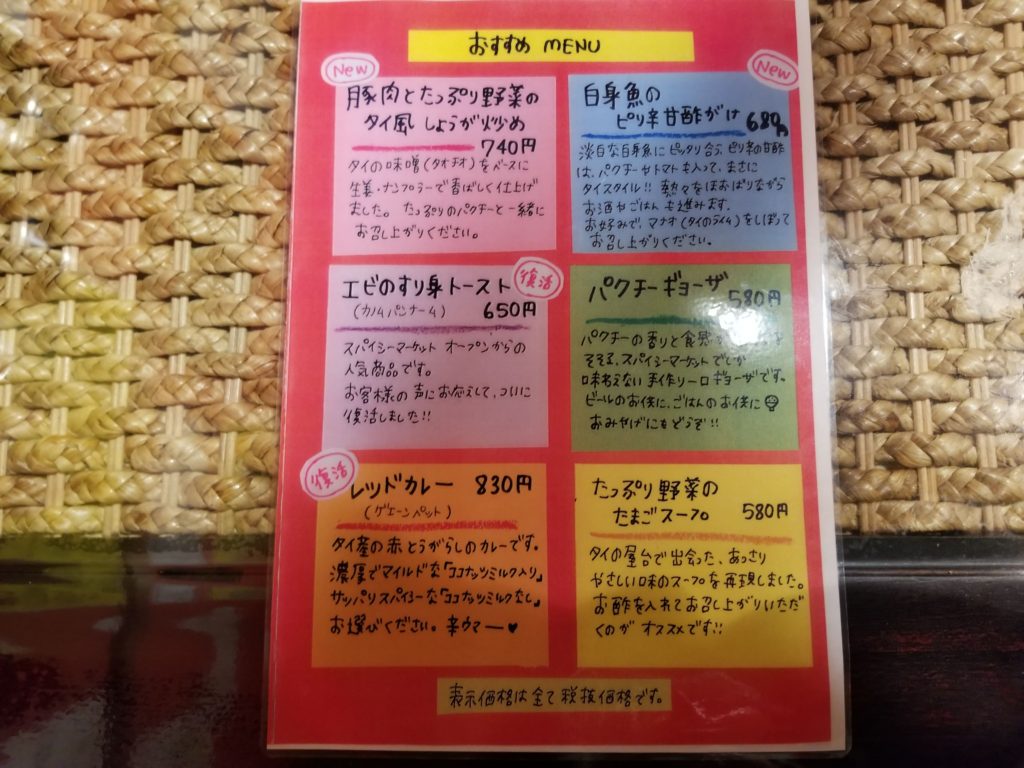 おすすめ MENU
New
豚肉とたっぷり野菜の
タイ風 しょうが炒め
740円
タイの味噌(タオチオ)をベースに
生姜・ナンプラーで香ばしく仕上げ
ました。たっぷりのパクチーと一緒に
お召し上がりください。
New
白身魚の
ピリ辛甘酢がけ 680円
淡白な白身魚にピッタリ合う、ピリ辛の甘酢
は、パクチーやトマトも入って、まさに
タイスタイル!! 熱々をほおばりながら
お酒やごはんも進みます。
お好みで、マナオ(タイのライム)をしぼって
お召し上がりください。
復活
エビのすり身トースト
(カノムパンナーム) 650円
スパイシーマーケット オープンからの
人気商品です。
お客様の声にお応えして、ついに
復活しました!!
パクチーギョーザ 580円
パクチーの香りと食感が
そそる、スパイシーマーケットでしか
味わえない手作り一口ギョーザです。
ビールのお供に、ごはんのお供に
おみやげにもどうぞ!!
復活
レッドカレー 830円
(ゲェーンペット)
タイ産の赤とうがらしのカレーです。
濃厚でマイルドな「ココナッツミルク入り」
サッパリスパイシーな「ココナッツミルクなし」
お選びください。辛ウマー♥
たっぷり野菜の
たまごスープ 580円
タイの屋台で出会った、あっさり
やさしい味のスープを再現しました。
お酢を入れてお召し上がりいただ
くのが オススメです!!
表示価格は全て税抜価格です。